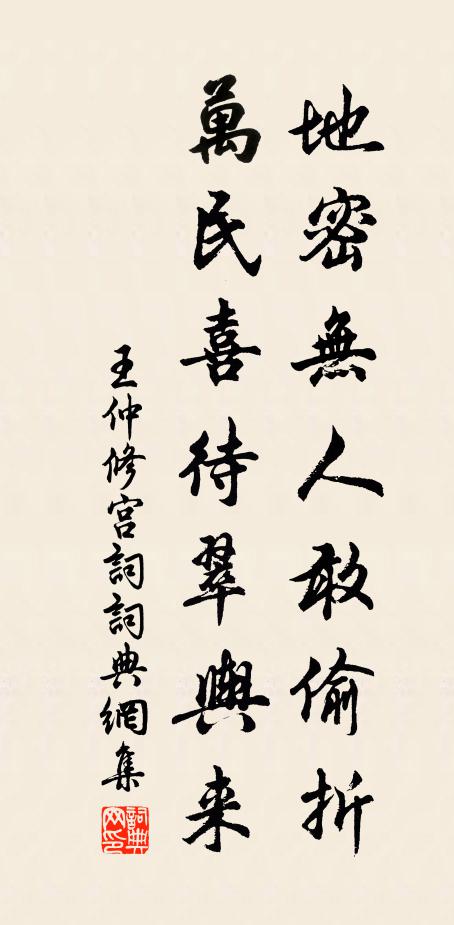 地密無人敢偷折
萬民喜待翠輿来
王仲修宫詞詞典網集
詞典網印